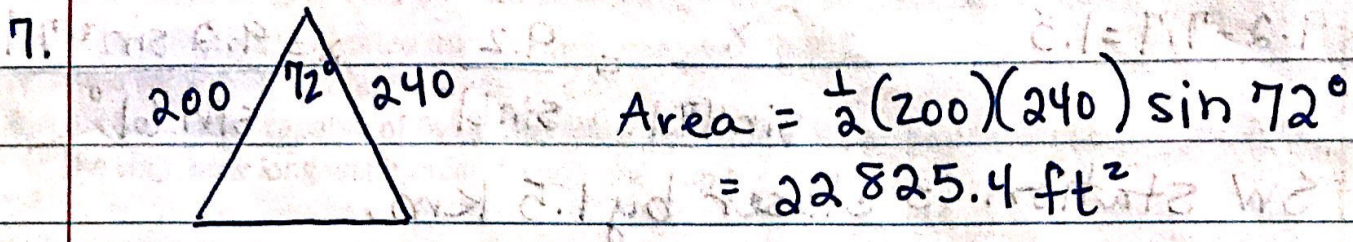 7.
72°
200
240
Area = 1/2 (200)(240) sin 72°
= 22825.4 ft²